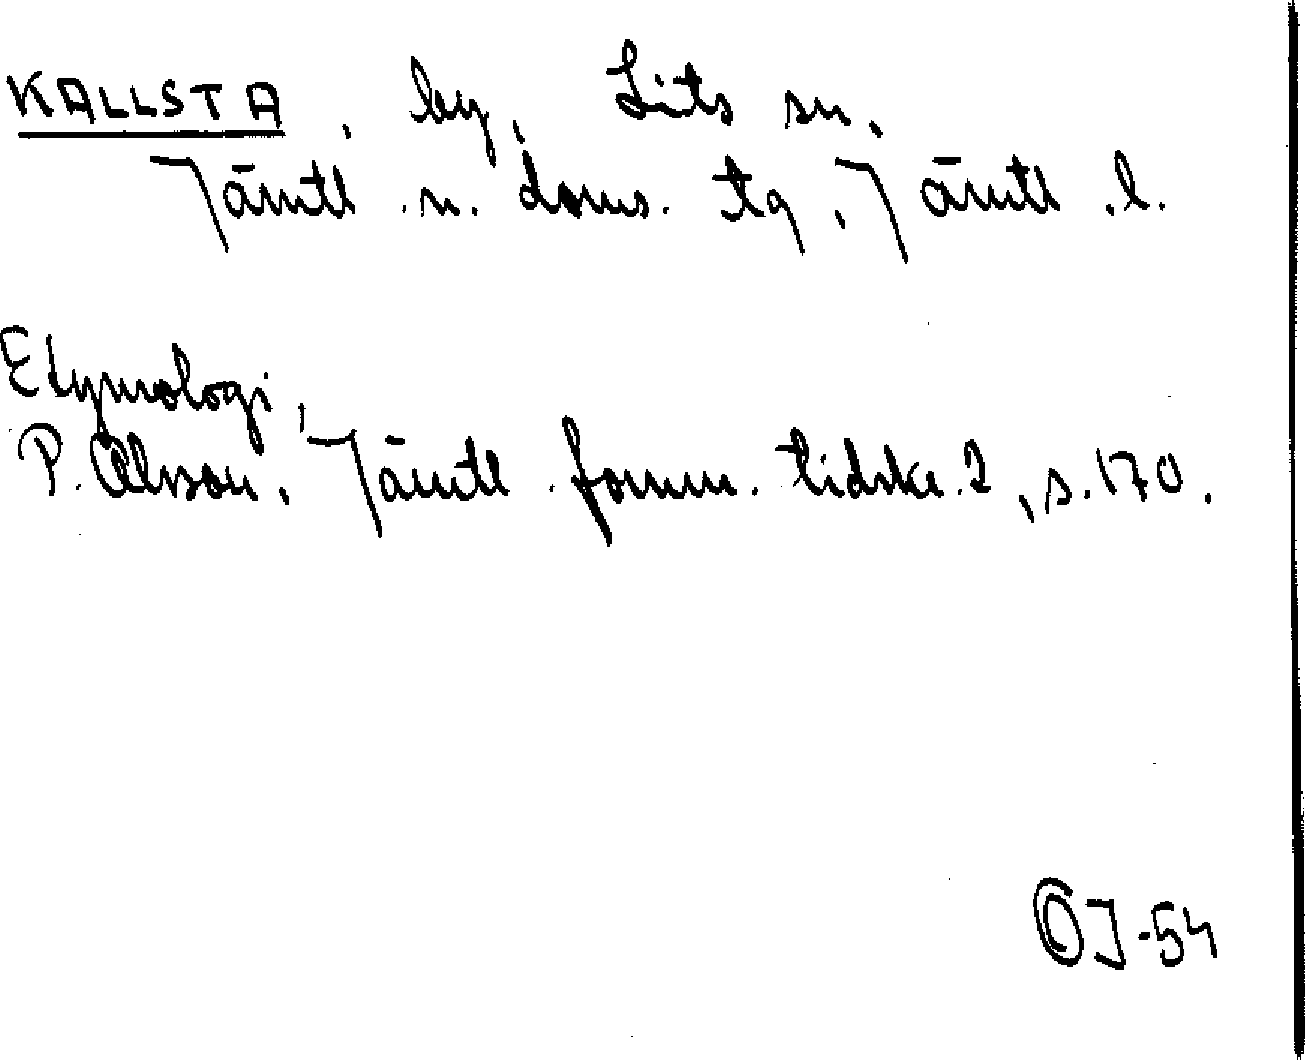 KALLSTA, by, Lits sn,
Jämtl. n. doms. tg, Jämtl. l.
Etymologi,
P. Olsson, Jämtl. fornm. tidskr. 2, s. 170.
OJ-54